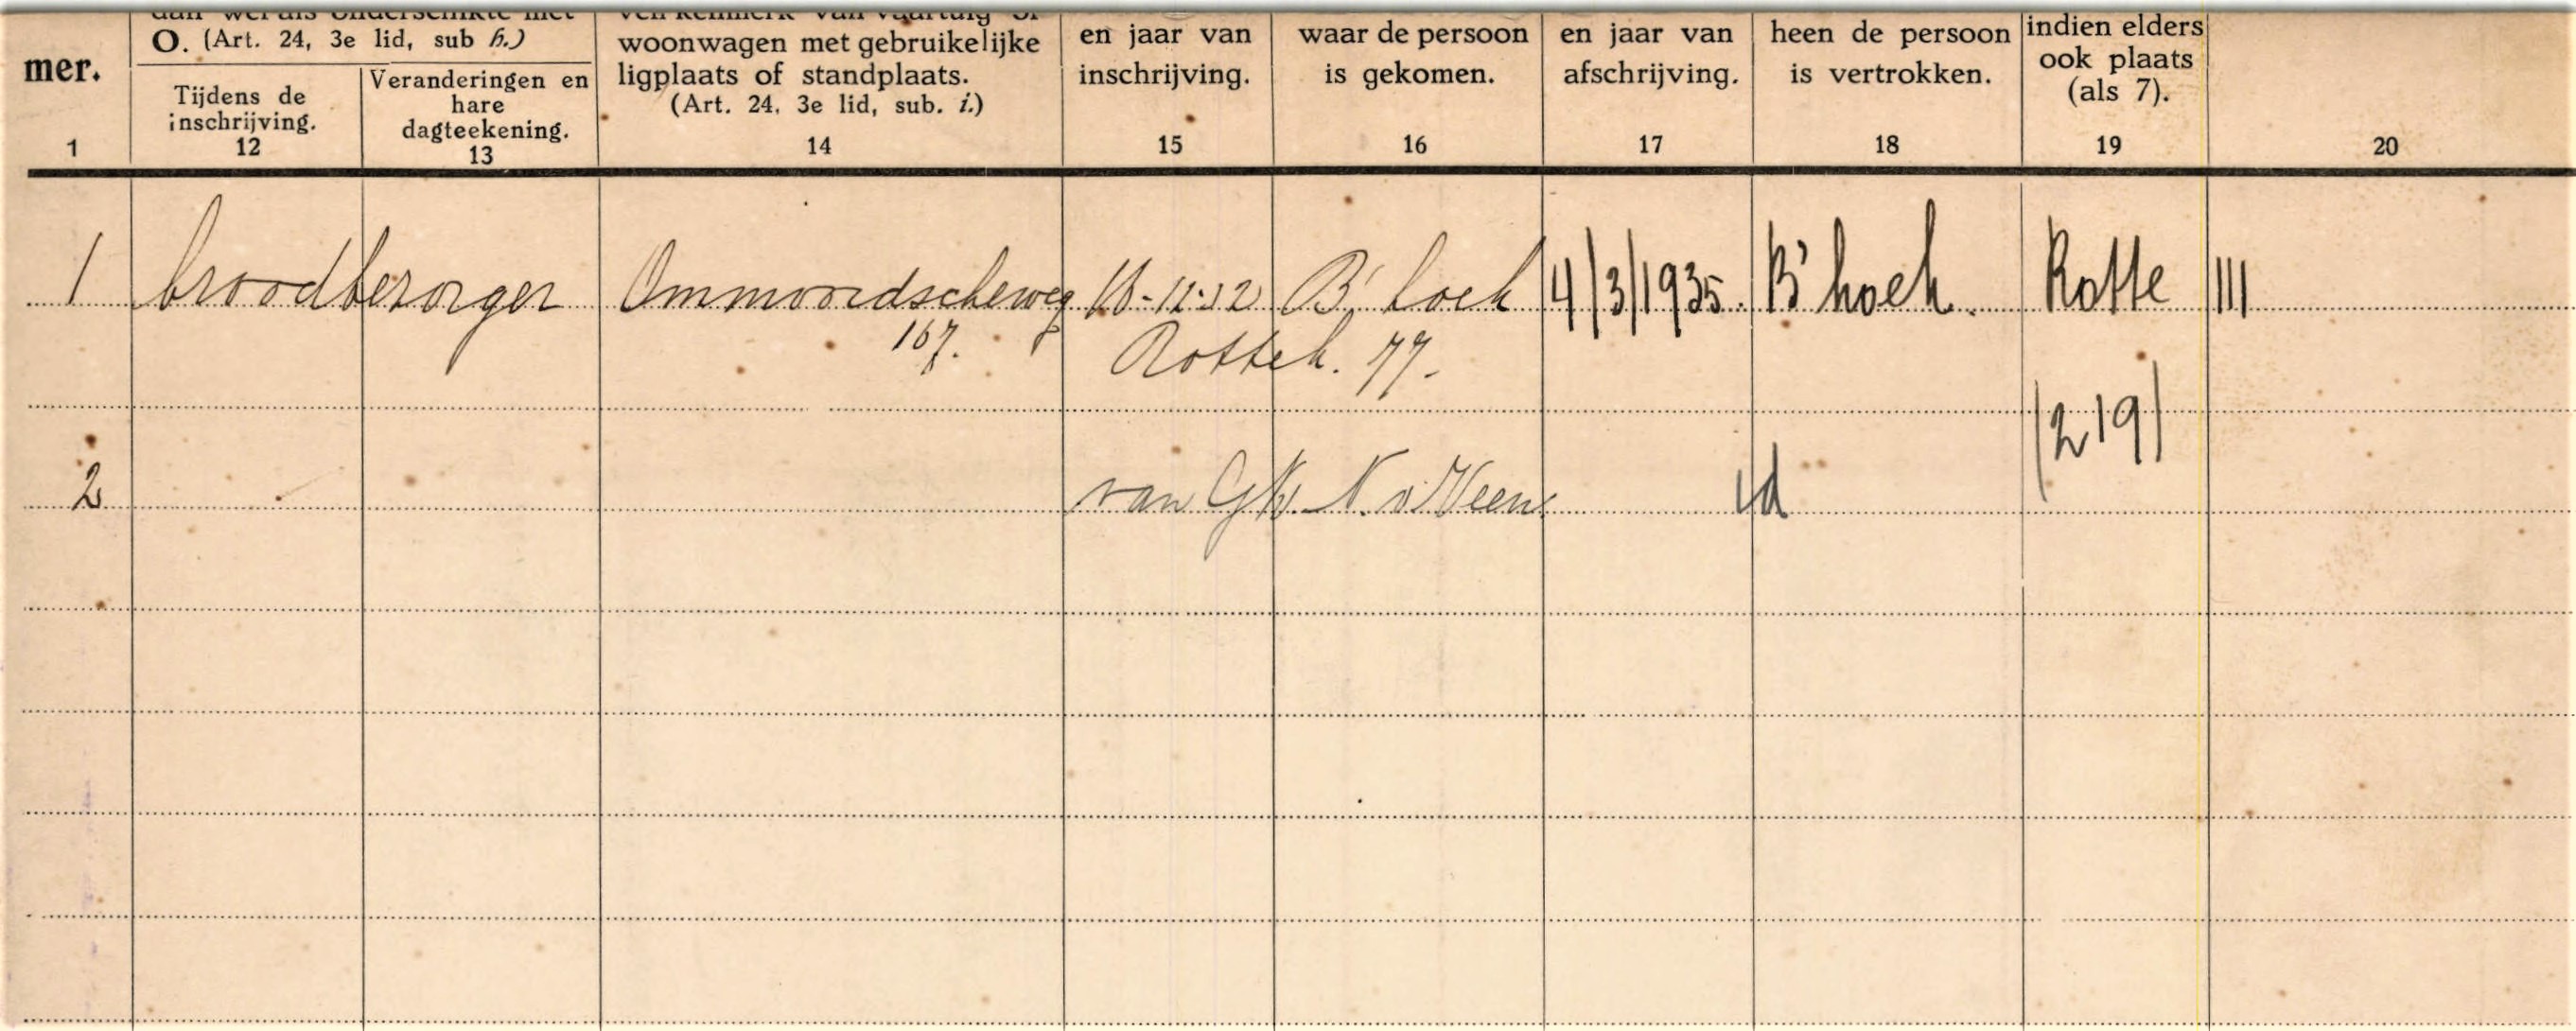 dan wel als ondergeschikte met
O. (Art. 24, 3e lid, sub h.)
ven kenmerk van vaartuig of
woonwagen met gebruikelijke
ligplaats of standplaats.
(Art. 24, 3e lid, sub. i.)
en jaar van
inschrijving.
waar de persoon
is gekomen.
en jaar van
afschrijving.
heen de persoon
is vertrokken.
indien elders
ook plaats
(als 7).
mer.
Tijdens de
inschrijving.
Veranderingen en
hare
dagteekening.
1 12 13 14 15 16 17 18 19 20
1 broodbezorger Ommoordscheweg -12 B' hoek 4/3/1935. B' hoek. Rotte III
167. Rottek. 77.
(219)
2 van GK. N. v. Veen. id